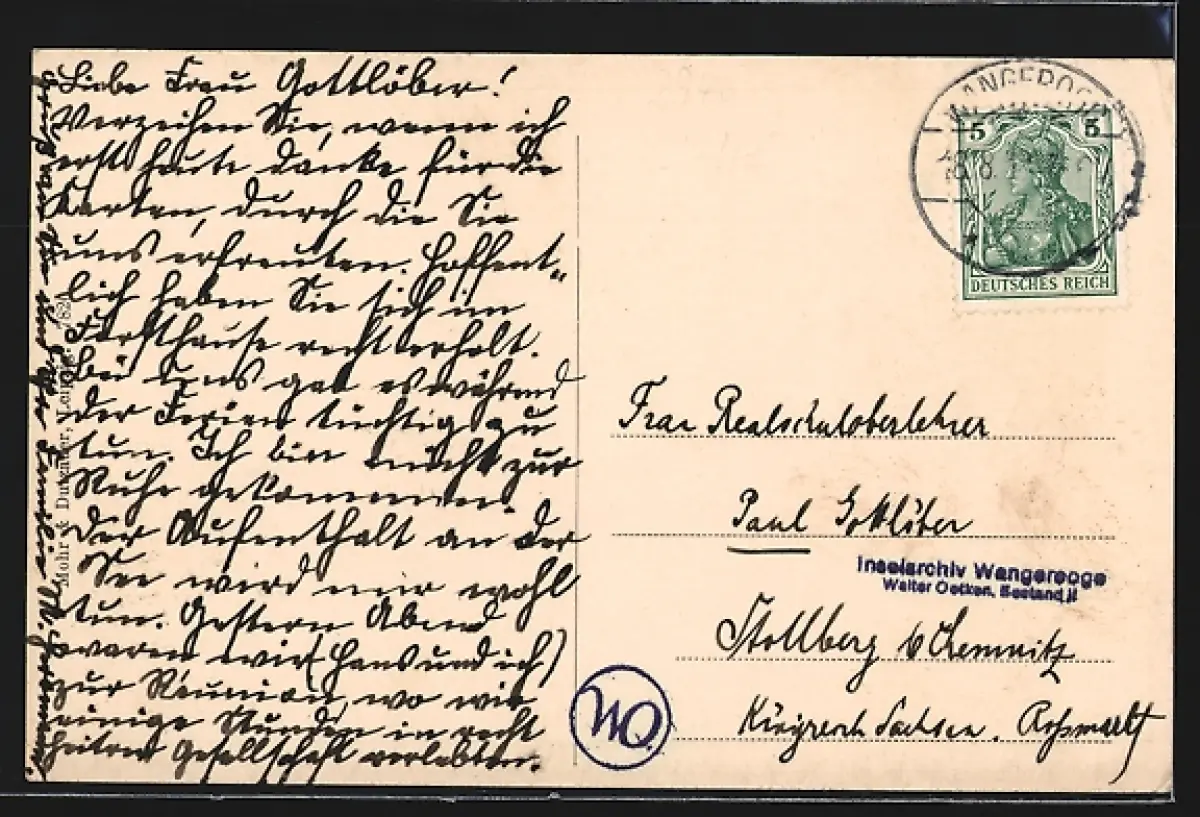 Liebe Frau Gottlöber!
Verzeihen Sie, wenn ich
erst heute danke für die
Karten, durch die Sie
uns erfreuten. Hoffent-
lich haben Sie sich im
Forsthause recht erholt.
Bei uns gab es während
der Ferien tüchtig zu
tun. Ich bin nicht zur
Ruhe gekommen.
Der Aufenthalt an der
See wird mir wohl
tun. Gestern Abend
waren wir (Hans und ich)
zur Réunion, wo wir
einige Stunden in recht
heiterer Gesellschaft verlebten.
Mohr & Dutzauer, Leipzig
WANGEROOG
18.8.1
5 5
DEUTSCHES REICH
Frau Realschuloberlehrer
Paul Gottlöber
Inselarchiv Wangerooge
Walter Oetken, Bestand II
Stollberg b/Chemnitz
Königreich Sachsen. Roßmarkt
WO